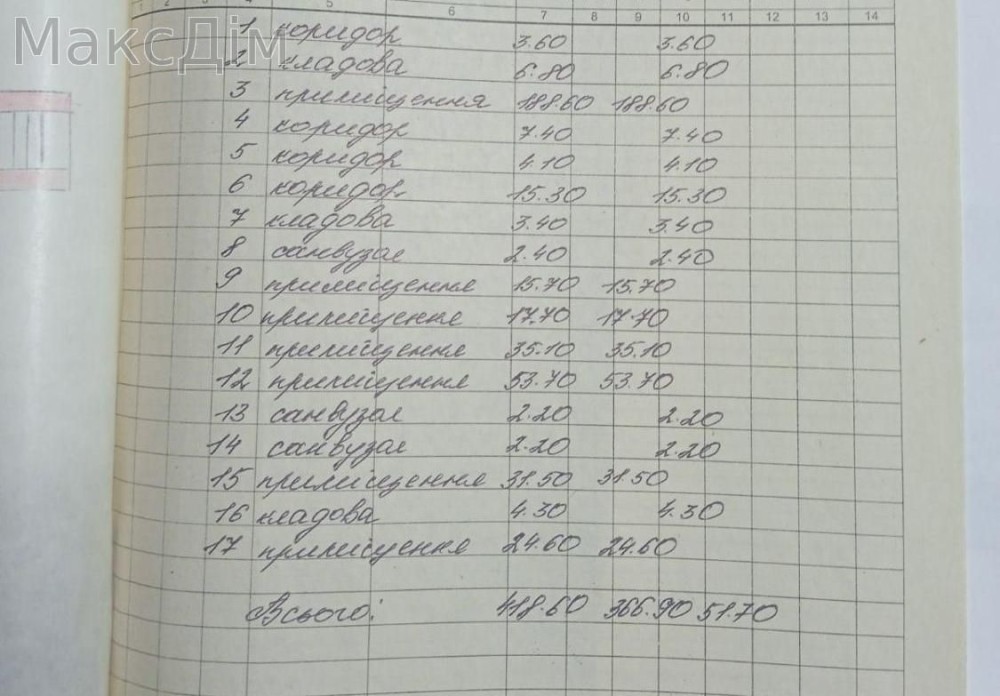 МаксДім
1 2 3 4 5 6 7 8 9 10 11 12 13 14
1 коридор 3.60 3.60
2 кладова 6.80 6.80
3 приміщення 188.60 188.60
4 коридор 7.40 7.40
5 коридор 4.10 4.10
6 коридор 15.30 15.30
7 кладова 3.40 3.40
8 санвузол 2.40 2.40
9 приміщення 15.70 15.70
10 приміщення 17.70 17.70
11 приміщення 35.10 35.10
12 приміщення 53.70 53.70
13 санвузол 2.20 2.20
14 санвузол 2.20 2.20
15 приміщення 31.50 31.50
16 кладова 4.30 4.30
17 приміщення 24.60 24.60
Всього: 418.60 366.90 51.70